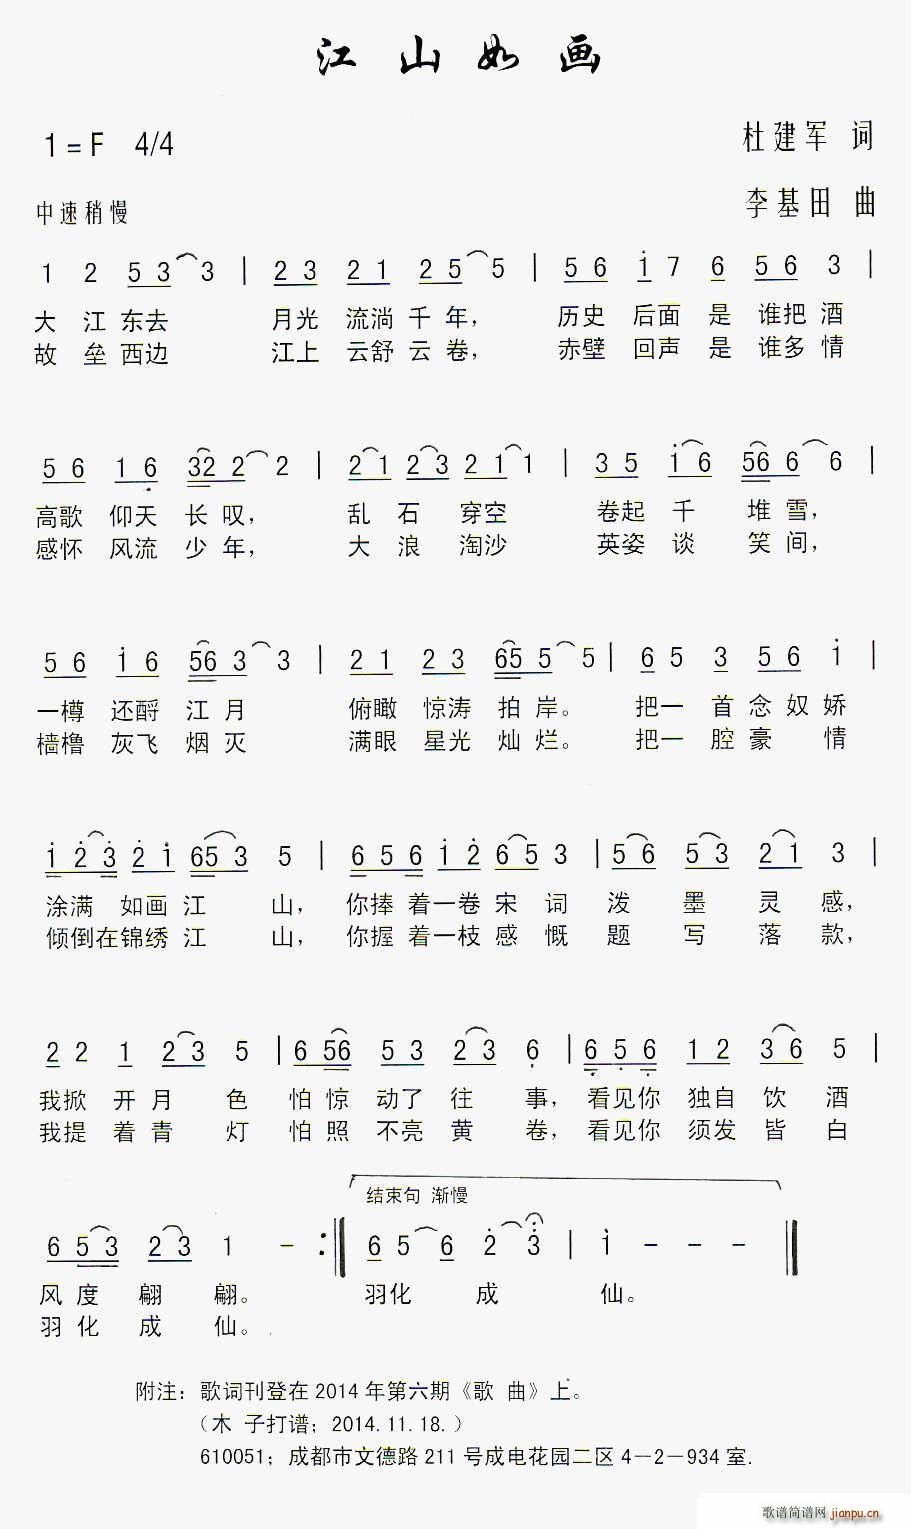 江 山 如 画
1 = F 4/4
杜建军 词
中速稍慢
李基田 曲
1 2 5 3 3 | 2 3 2 1 2 5 5 | 5 6 i 7 6 5 6 3 |
大 江 东去 月光 流淌 千 年， 历史 后面 是 谁把 酒
故 垒 西边 江上 云舒 云 卷， 赤壁 回声 是 谁多 情
5 6 1 6 32 2 2 | 2 1 2 3 2 1 1 | 3 5 i 6 56 6 6 |
高歌 仰天 长 叹， 乱 石 穿空 卷起 千 堆 雪，
感怀 风流 少 年， 大 浪 淘沙 英姿 谈 笑 间，
5 6 i 6 56 3 3 | 2 1 2 3 65 5 5 | 6 5 3 5 6 i |
一樽 还酹 江 月 俯瞰 惊涛 拍 岸。 把一 首 念 奴 娇
樯橹 灰飞 烟 灭 满眼 星光 灿 烂。 把一 腔 豪 情
i 2 3 2 i 65 3 5 | 6 5 6 i 2 6 5 3 | 5 6 5 3 2 1 3 |
涂满 如画 江 山， 你捧 着一卷 宋 词 泼 墨 灵 感，
倾倒在锦绣 江 山， 你握 着一枝 感 慨 题 写 落 款，
2 2 1 2 3 5 | 6 56 5 3 2 3 6 | 6 5 6 1 2 3 6 5 |
我掀 开 月 色 怕 惊 动了 往 事， 看见你 独自 饮 酒
我提 着 青 灯 怕 照 不亮 黄 卷， 看见你 须发 皆 白
结束句 渐慢
6 5 3 2 3 1 － :‖ 6 5 6 2 3 | i － － － ‖
风 度 翩 翩。 羽化 成 仙。
羽 化 成 仙。
附注：歌词刊登在 2014 年第六期《歌 曲》上。
（木 子打谱；2014.11.18.）
610051；成都市文德路 211 号成电花园二区 4－2－934 室.
歌谱简谱网 jianpu.cn